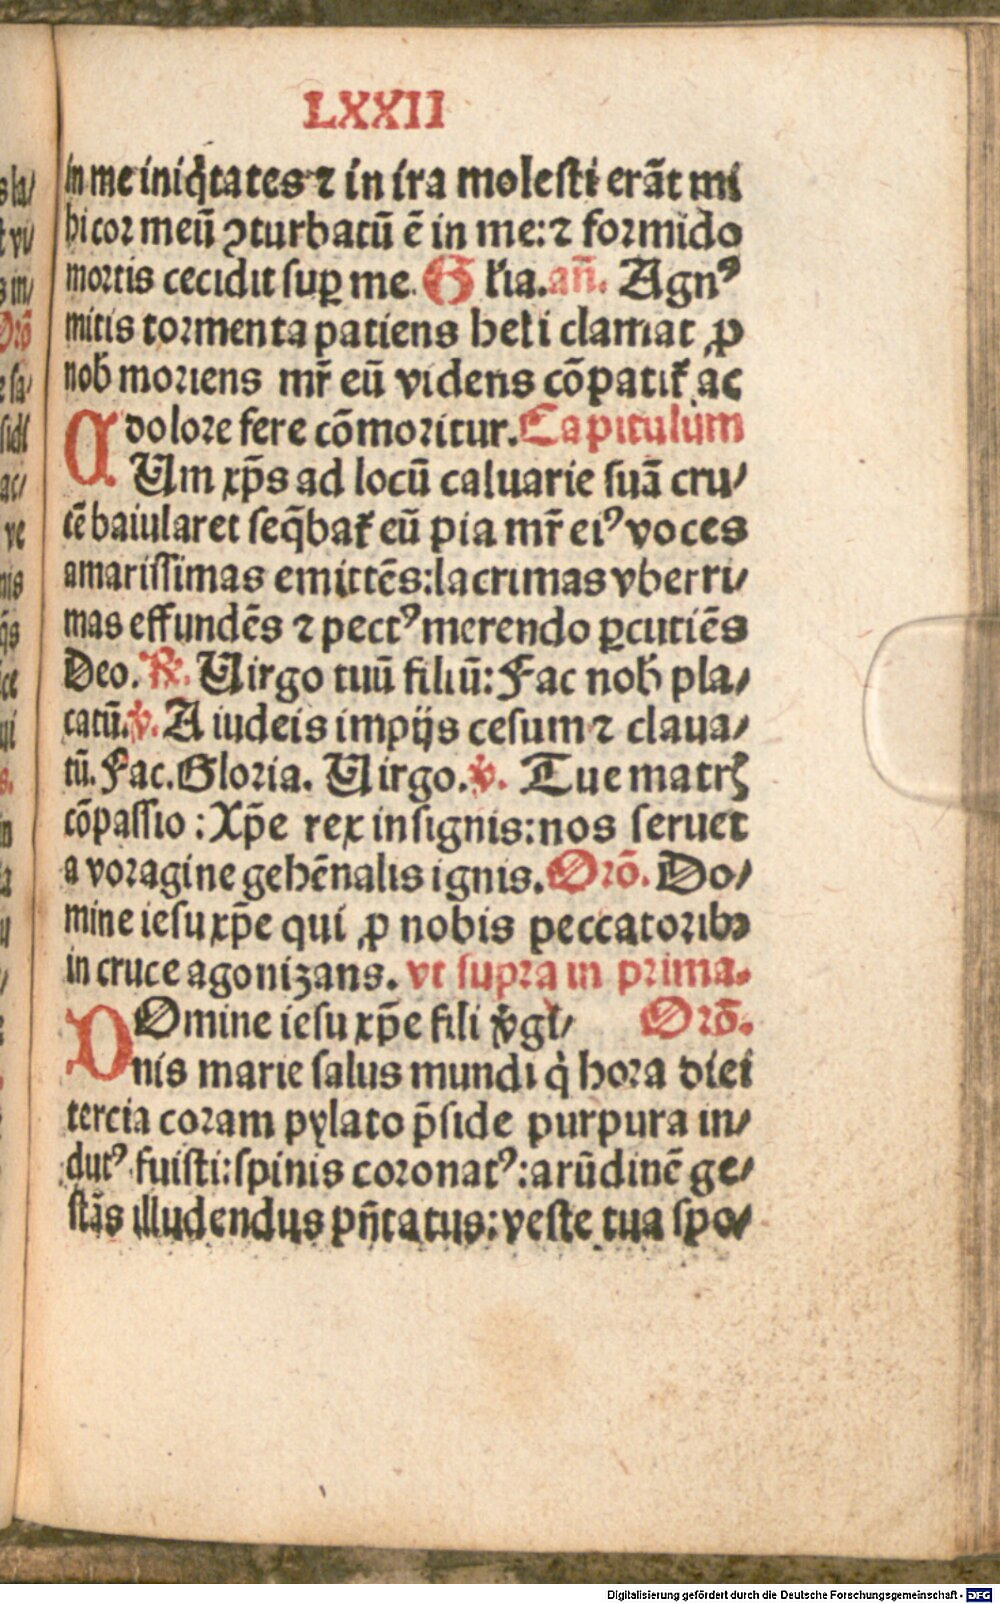 LXXII
in me iniq̇tates ⁊ in ira molesti erãt mi
hi cor meũ ꝯturbatũ ẽ in me: ⁊ formido
mortis cecidit suꝑ me. Gl'ia. añ. Agnꝰ
mitis tormenta patiens heli clamat ꝓ
nob moriens mr̃ eũ videns cõpatit̃ ac
dolore fere cõmoritur. Capitulum
CUm xp̃s ad locũ caluarie suã cru⸗
cẽ baiularet seq̃bat̃ eũ pia mr̃ eiꝰ voces
amarissimas emittẽs: lacrimas vberri⸗
mas effundẽs ⁊ pectꝰ merendo ꝑcutiẽs
Deo. ℟. Uirgo tuũ filiũ: Fac nob pla⸗
catũ. ℣. A iudeis impijs cesum ⁊ claua⸗
tũ. Fac. Gloria. Uirgo. ℣. Tue matrꝭ
cõpassio: Xp̃e rex insignis: nos seruet
a voragine gehẽnalis ignis. Orõ. Do⸗
mine iesu xp̃e qui ꝓ nobis peccatoribꝫ
in cruce agonizans. vt supra in prima.
DOmine iesu xp̃e fili v̓gi⸗ Orõ.
nis marie salus mundi q̇ hora diei
tercia coram pylato p̃side purpura in⸗
dutꝰ fuisti: spinis coronatꝰ: arũdinẽ ge⸗
stãs illudendus pñtatus: veste tua spo⸗
sla⸗
t vi⸗
s in⸗
Orõ
e sa⸗
sidẽ
ac⸗
ve
nis
q̃s
ui
s.
in
Digitalisierung gefördert durch die Deutsche Forschungsgemeinschaft - DFG